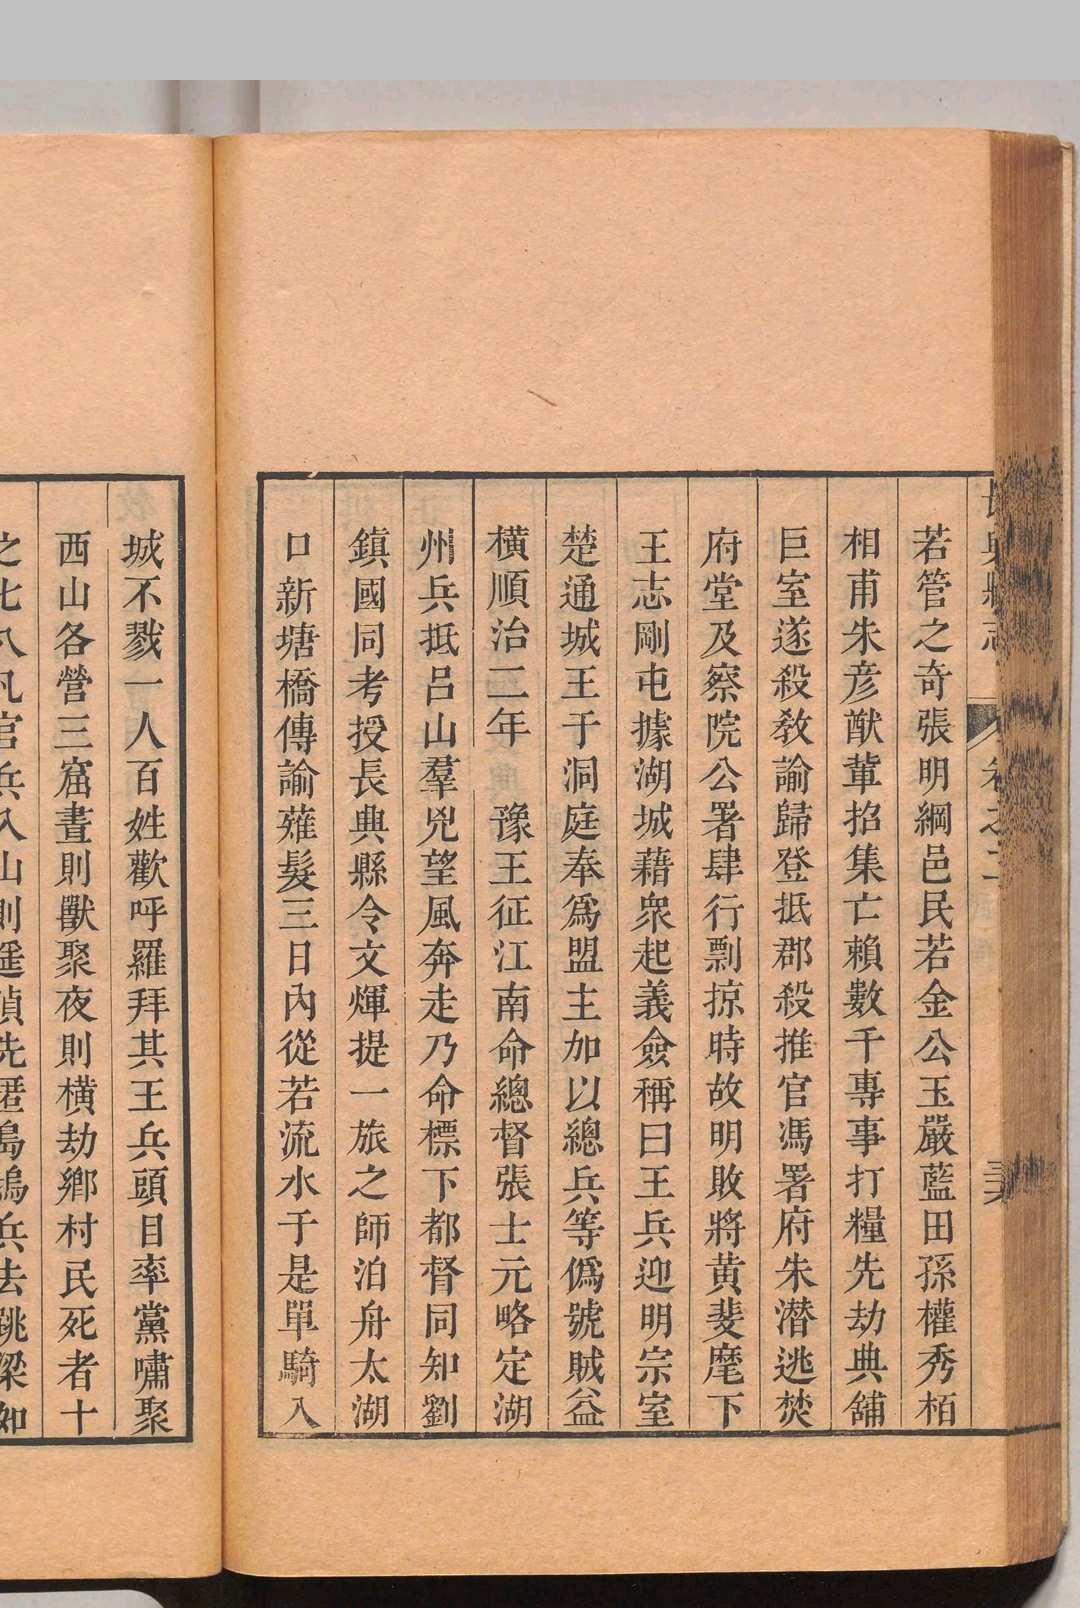 長興縣志
卷之二
若管之奇張明綱邑民若金公玉嚴藍田孫權秀栢
相甫朱彦猷輩招集亡賴數千專事打糧先劫典舖
巨室遂殺教諭歸登抵郡殺推官馮署府朱潜逃焚
府堂及察院公署肆行剽掠時故明敗將黄斐麾下
王志剛屯據湖城藉衆起義僉稱曰王兵迎明宗室
楚通城王于洞庭奉爲盟主加以總兵等僞號賊益
橫順治二年 豫王征江南命總督張士元略定湖
州兵抵呂山羣兇望風奔走乃命標下都督同知劉
鎮國同考授長興縣令文煇提一旅之師泊舟太湖
口新塘橋傳諭薙髮三日內從若流水于是單騎入
城不戮一人百姓歡呼羅拜其王兵頭目率黨嘯聚
西山各營三窟晝則獸聚夜則横劫鄉村民死者十
之七八凡官兵入山則遥偵先匿島塢兵去跳梁如